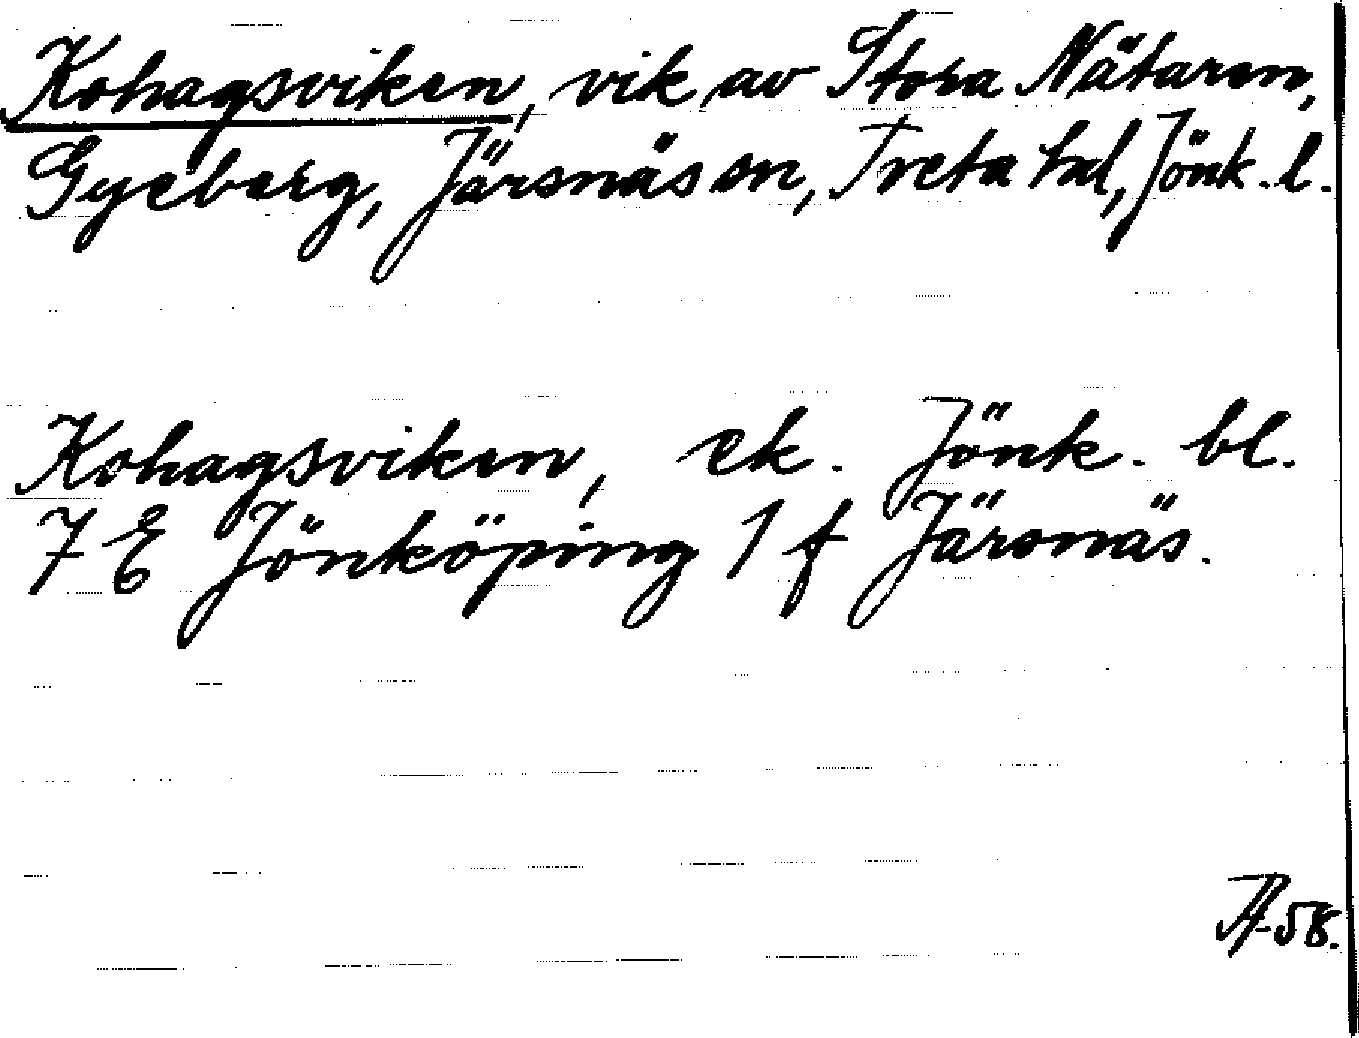 Kohagsviken, vik av Stora Nätaren,
Gyeberg, Järsnäs sn, Tveta hd, Jönk. l.
Kohagsviken, ek. Jönk. bl.
7 E Jönköping 1 f Järsnäs.
58.